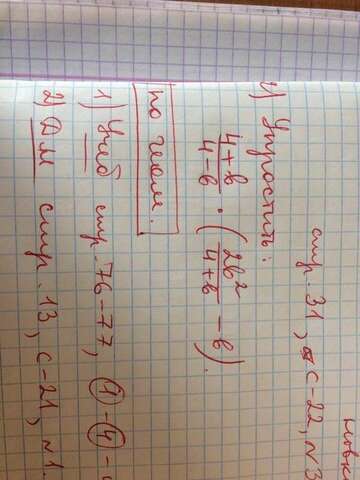 стр. 31, С-22, №3
2) Упростить:
(4+b)/(4-b) · (2b²/(4+b) - b).
по геом.
1) Учеб стр. 76-77, ①-④-
2) ДМ стр. 13, С-21, №1.